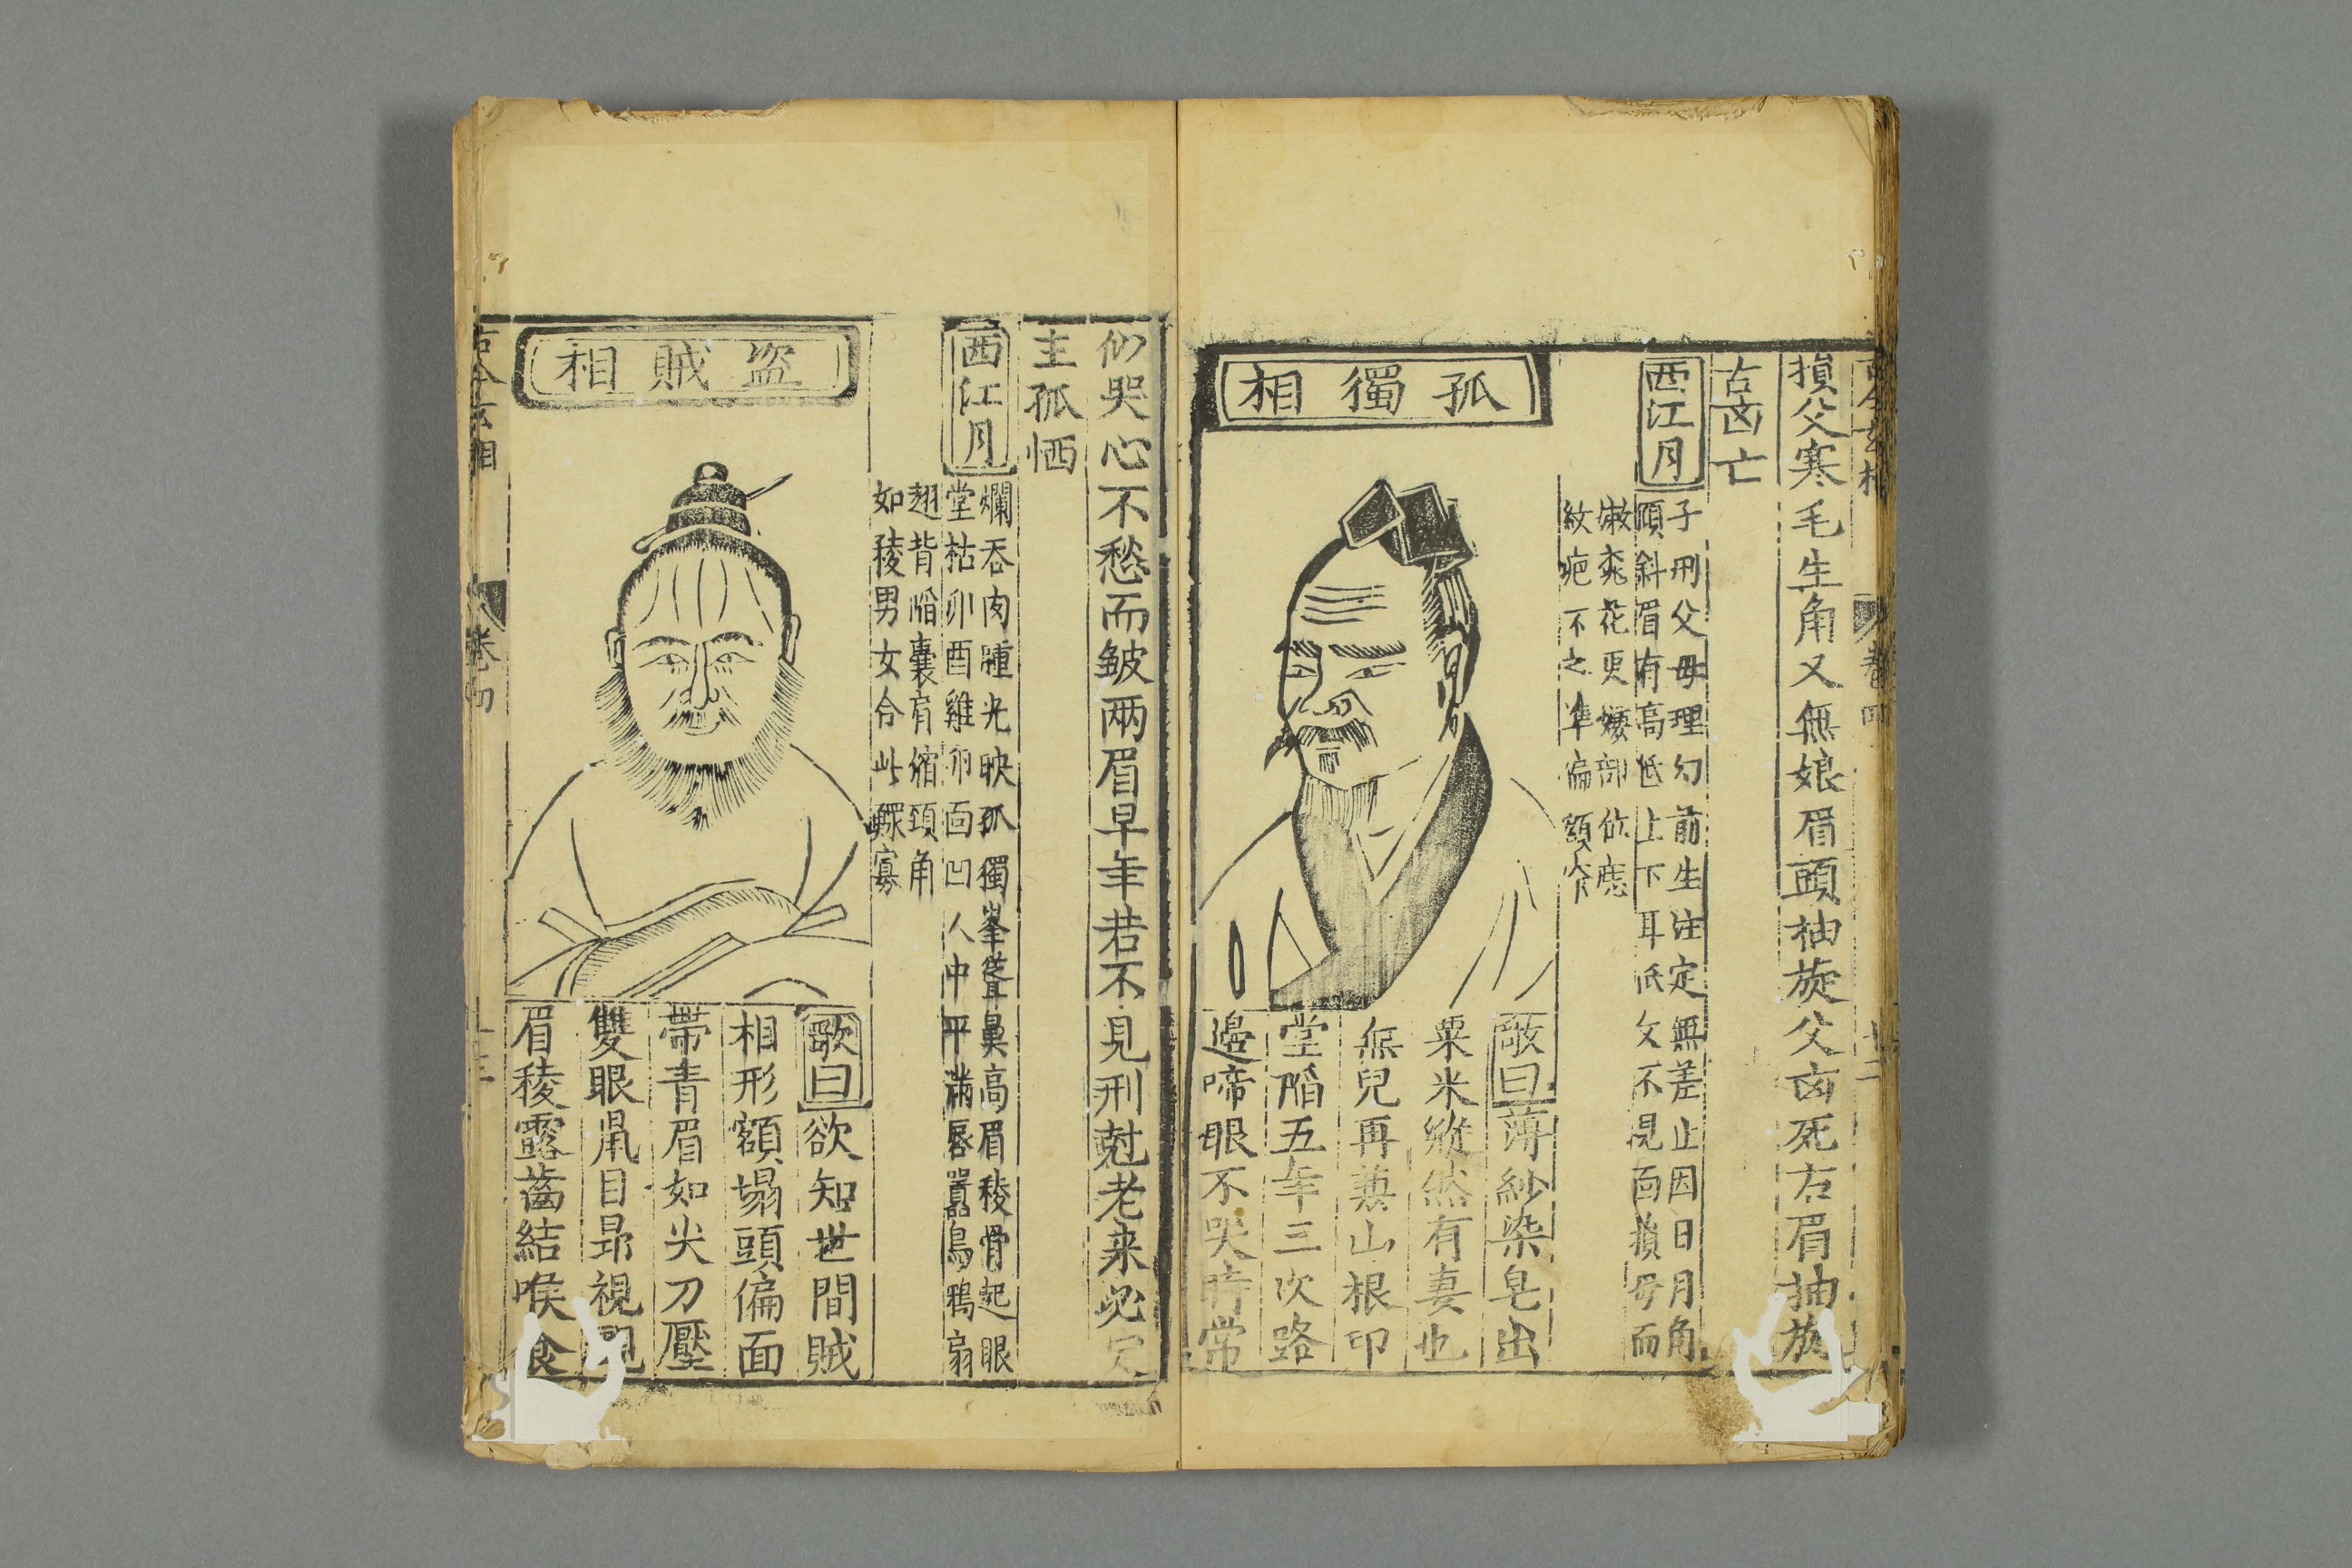 損父寒毛生角又無娘眉頭抽旋父凶死右眉抽旋
古凶亡
西江月
子刑父母理幻前生注定無差止因日月角
頎斜眉有高低上下耳低父不見面損母而
紋疤不之準偏額窄
孤獨相
歌曰薄紗染皂出
粟米縱然有妻也
無兒再兼山根印
堂陷五年三次路
邉啼眼不哭時常
似哭心不愁而皴兩眉早年若不見刑尅老来必定
主孤恓
西江月
爛吞肉腫光映孤獨峯聳鼻高眉稜骨起眼
堂枯卯酉雞卵面凹人中平滿唇囂鳥鴉扇
翅背陷囊肩縮頭角
如稜男女合此鰥寡
盜賊相
歌曰欲知世間賊
相形額塌頭偏面
帶青眉如尖刀壓
雙眼鼡目昂視
眉稜露齒結喉食
古今玄相
卷四